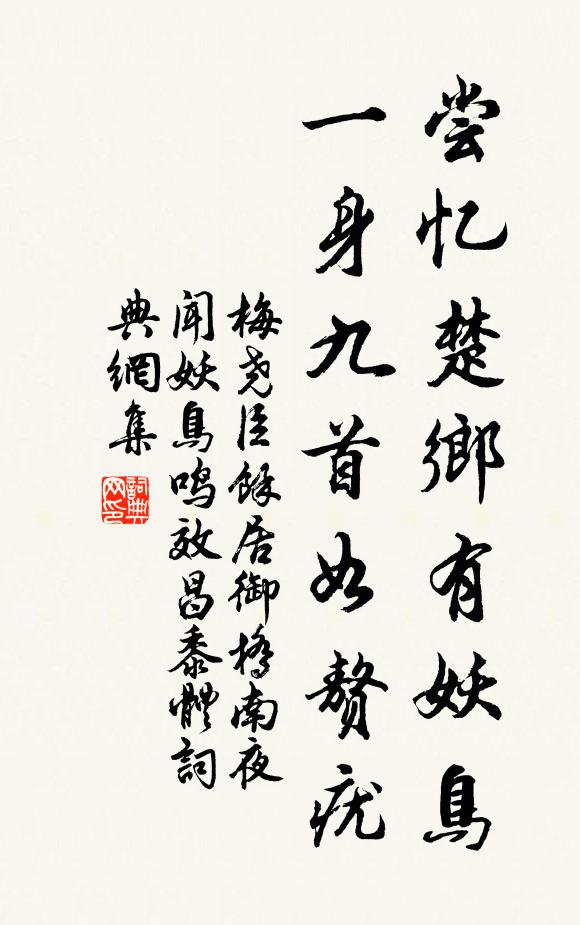 尝忆楚鄉有妖鳥
一身九首如赘疣
梅尧臣餘居御橋南夜
聞妖鳥鳴效昌黍體詞
典網集
詞典
网印